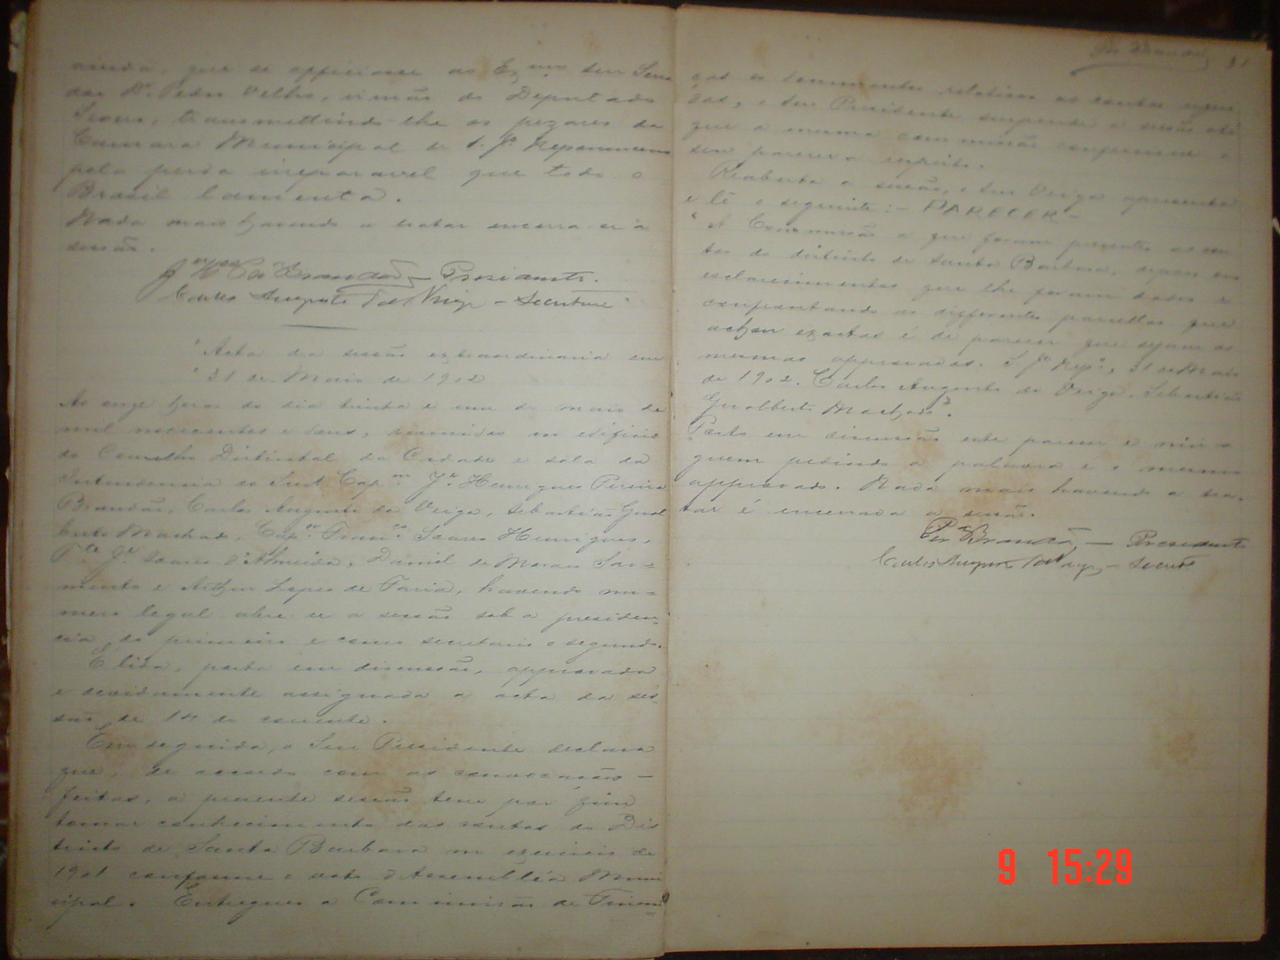 ainda, que se officiasse ao Ex.mo Snr. Sena
dor Dr. Pedro Velho, irmão do Deputado
Severo, transmettindo-lhe os pezares da
Camara Municipal de S. J. Nepomuceno
pela perda irreparavel que todo o
Brasil lamenta.
Nada mais havendo a tratar encerra-se a
sessão.
Brandão – Presidente.
Carlos Augusto da Veiga – Secretario
Acta da sessão extraordinaria em
31 de Maio de 1902
Ao onze horas do dia trinta e um de maio de
mil novecentos e dous, reunidos no edificio
do Conselho Districtal da Cidade e sala da
Intendencia os Snrs. Cap.m J.e Henriques Pereira
Brandão, Carlos Augusto da Veiga, Sebastião Gual
berto Machado, Cap.m Fran.co Soares Henriques,
T.e J.e Soares d'Almeida, Daniel de Moraes Sar-
mento e Arthur Lopes de Faria, havendo nu-
mero legal abre-se a sessão sob a presiden-
cia do primeiro e como secretario o segundo.
É lida, posta em discussão, approvada
e devidamente assignada a acta da ses-
são de 14 do corrente.
Em seguida, o Snr. Presidente declara
que, de accordo com as convocações
feitas, a presente sessão tem por fim
tomar conhecimento das contas do Dis
tricto de Santa Barbara no exercicio de
1901 conforme o voto d'Assembléa Muni
cipal. Entregues a Commissão de Finan
Brandão 31
ças os documentos relativos as contas
e o Snr. Presidente suspende a sessão até
que a mesma commissão
seu parecer a respeito.
Reaberta a sessão, o Snr. Veiga apresenta
e lê o seguinte: – PARECER –
"A Commissão a que foram presentes as con
tas do districto de Santa Barbara, depois dos
esclarecimentos que lhe foram dados e
confrontando as differentes parcellas que
acham exactas é de parecer que sejam as
mesmas approvadas. S. J. Nep.o, 31 de Maio
de 1902. Carlos Augusto da Veiga. Sebastião
Gualberto Machado".
Posto em discussão este parecer e nin-
guem pedindo a palavra é o mesmo
approvado. Nada mais havendo a tra-
tar é encerrada a sessão.
Brandão – Presidente
Carlos Augusto da Veiga – Secret.o
9 15:29